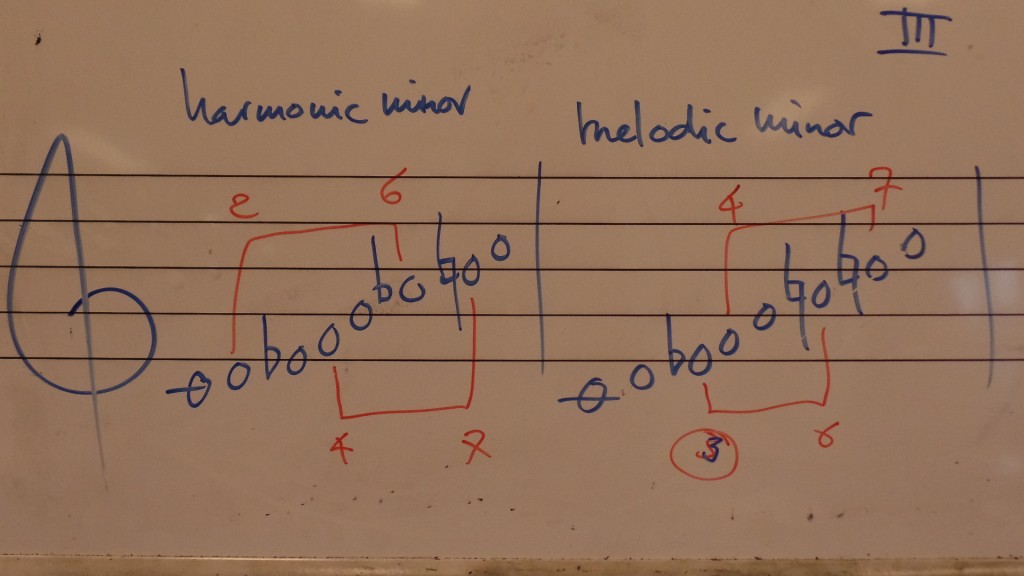 III
harmonic minor
melodic minor
2 6 4 7
4 7 3 6